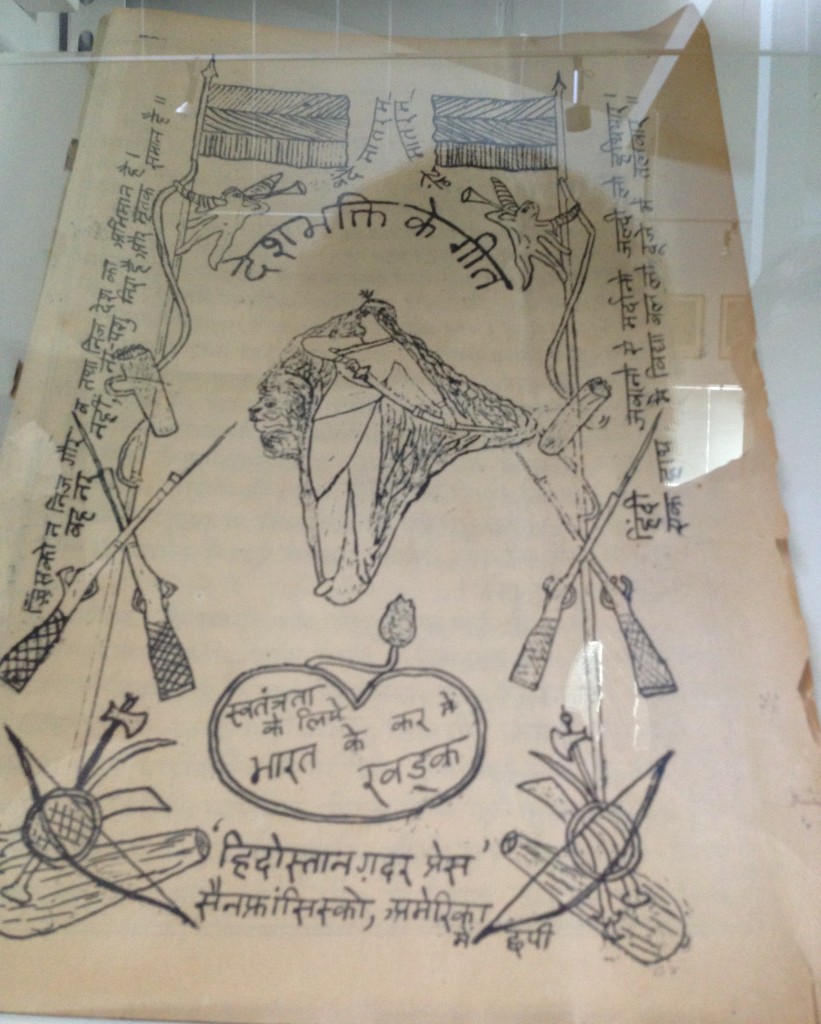 वंदे मातरम्
वंदे मातरम्
देशभक्ति के गीत
जिसको न निज गौरव तथा निज देश का अभिमान है।
वह नर नहीं, नर-पशु निरा है और मृतक समान है॥
हिंदी जवानो ऐ मर्दानो जल्दी लो हथियार।
एक हाथ में विद्या बल लो दूजे में तलवार॥
स्वतंत्रता
के लिये
भारत के कर में
खड़क
'हिंदोस्तान ग़दर प्रेस'
सैनफ्रांसिस्को, अमेरिका
में छपी